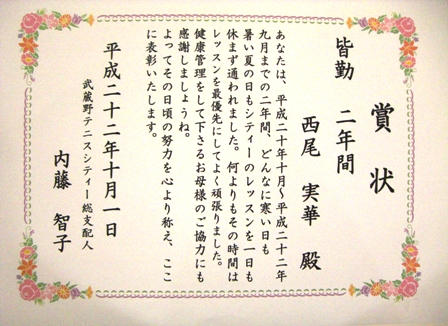 賞状
皆勤 二年間
西尾 実華 殿
あなたは、平成二十年十月〜平成二十二年
九月までの二年間、どんなに寒い日も
暑い夏の日もシティーのレッスンを一日も
休まず通われました。何よりもその時間は
レッスンを最優先にしてよく頑張りました。
健康管理をして下さるお母様のご協力にも
感謝しましょうね。
よってその日頃の努力を心より称え、ここ
に表彰いたします。
平成二十二年十月一日
武蔵野テニスシティー総支配人
内藤 智子